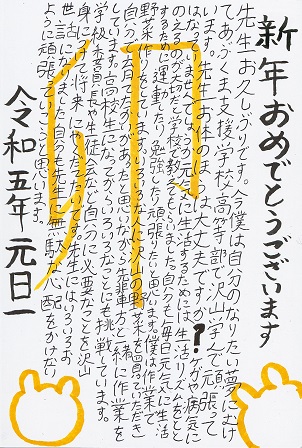 新年おめでとうございます
先生お久しぶりです。今僕は自分のなりたい夢にむけ
てあらくま支援学校高等部で沢山学んで頑張って
います。先生お体のほうは大丈夫ですか?ケガや病気に
はなっていませんでしょうか。元気に生活するためには、生活リズムをとと
のえるのが大切だと学校で教えてもらいました。自分も毎日元気に生活
するために運動したり勉強したり頑張りたいと思います。僕は作業で、
野菜作りをしています。いろいろな人に沢山の野菜を買っていただき
自分でも育てたかいがあったと思いながら先輩方と一緒に作業を
しています。高校生になってからいろいろなことにも挑戦しています。
学級委員長や生徒会など自分に必要なことを沢山
身に付けて将来にやくだてたいです。先生にはいろいろお
世話になりました。自分も先生に無駄な心配をかけない
ように頑張っていこうと思います。
令和五年 元日
卯